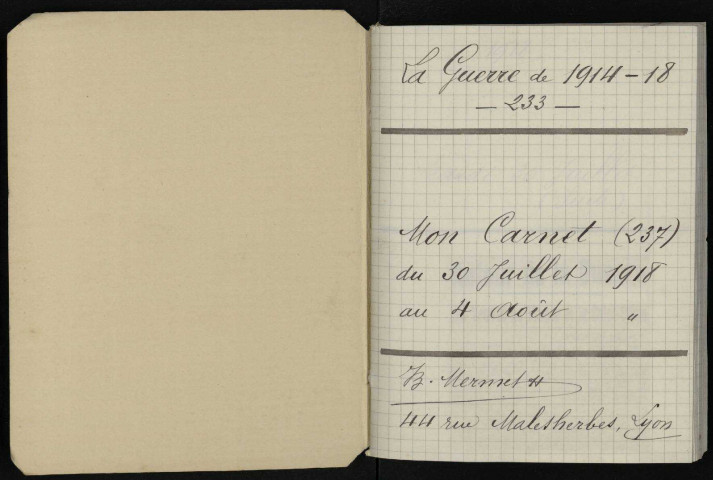 La Guerre de 1914-18
— 233 —
Mon Carnet (237)
du 30 Juillet 1918
au 4 Août "
B. Mermet
44 rue Malesherbes, Lyon